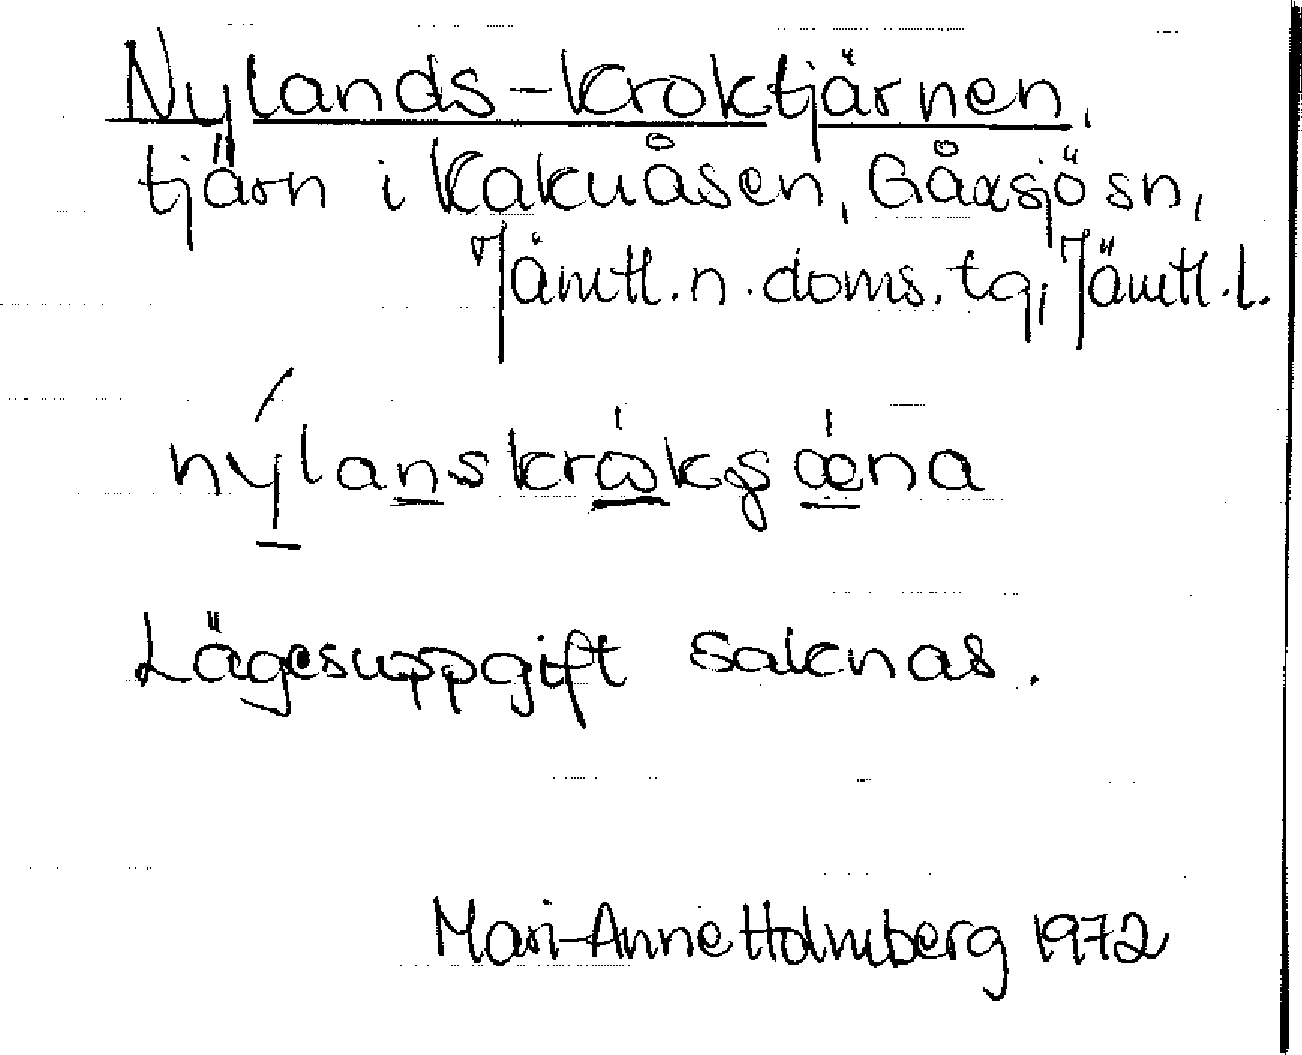 Nylands-Kroktjärnen,
tjärn i Kakuåsen, Gåxsjö sn,
Jämtl. n. doms. tg, Jämtl. l.
Lägesuppgift saknas.
Mari-Anne Holmberg 1972